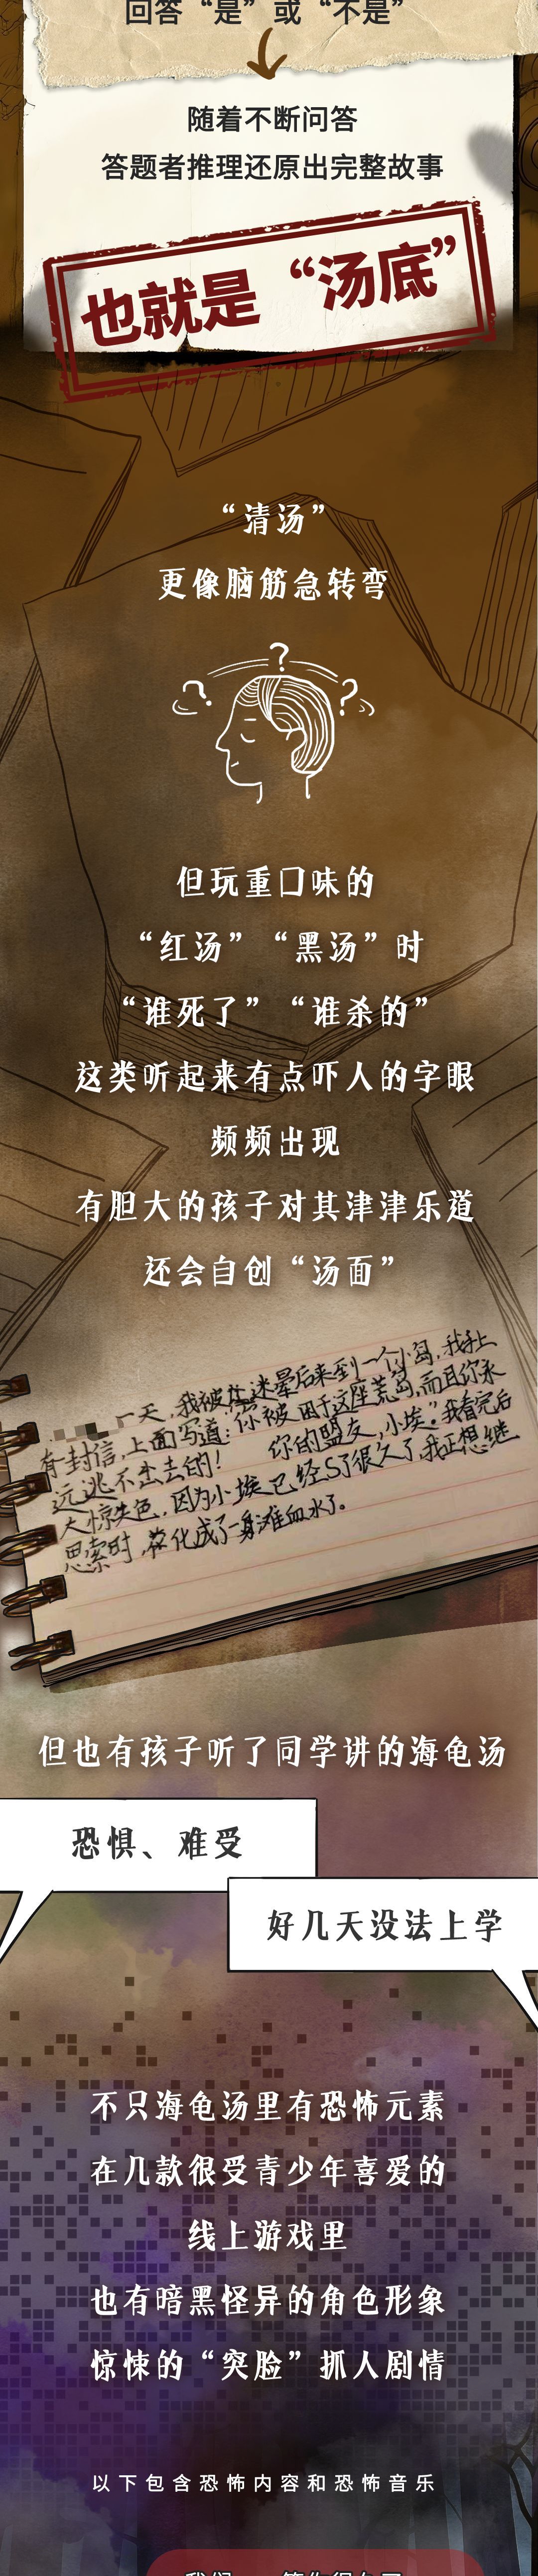 回答“是”或“不是”
随着不断问答
答题者推理还原出完整故事
也就是“汤底”
“清汤”
更像脑筋急转弯
?
?
?
但玩重口味的
“红汤”“黑汤”时
“谁死了”“谁杀的”
这类听起来有点吓人的字眼
频频出现
有胆大的孩子对其津津乐道
还会自创“汤面”
一天，我被迷晕后来到一个小岛，我手上
有封信，上面写道：你被困于这座荒岛，而且你永
远逃不出去的！ 你的盟友，小埃”我看完后
大惊失色，因为小埃已经S了很久了，我正想继
思索时，化成了一身滩血水了。
但也有孩子听了同学讲的海龟汤
恐惧、难受
好几天没法上学
不只海龟汤里有恐怖元素
在几款很受青少年喜爱的
线上游戏里
也有暗黑怪异的角色形象
惊悚的“突脸”抓人剧情
以下包含恐怖内容和恐怖音乐